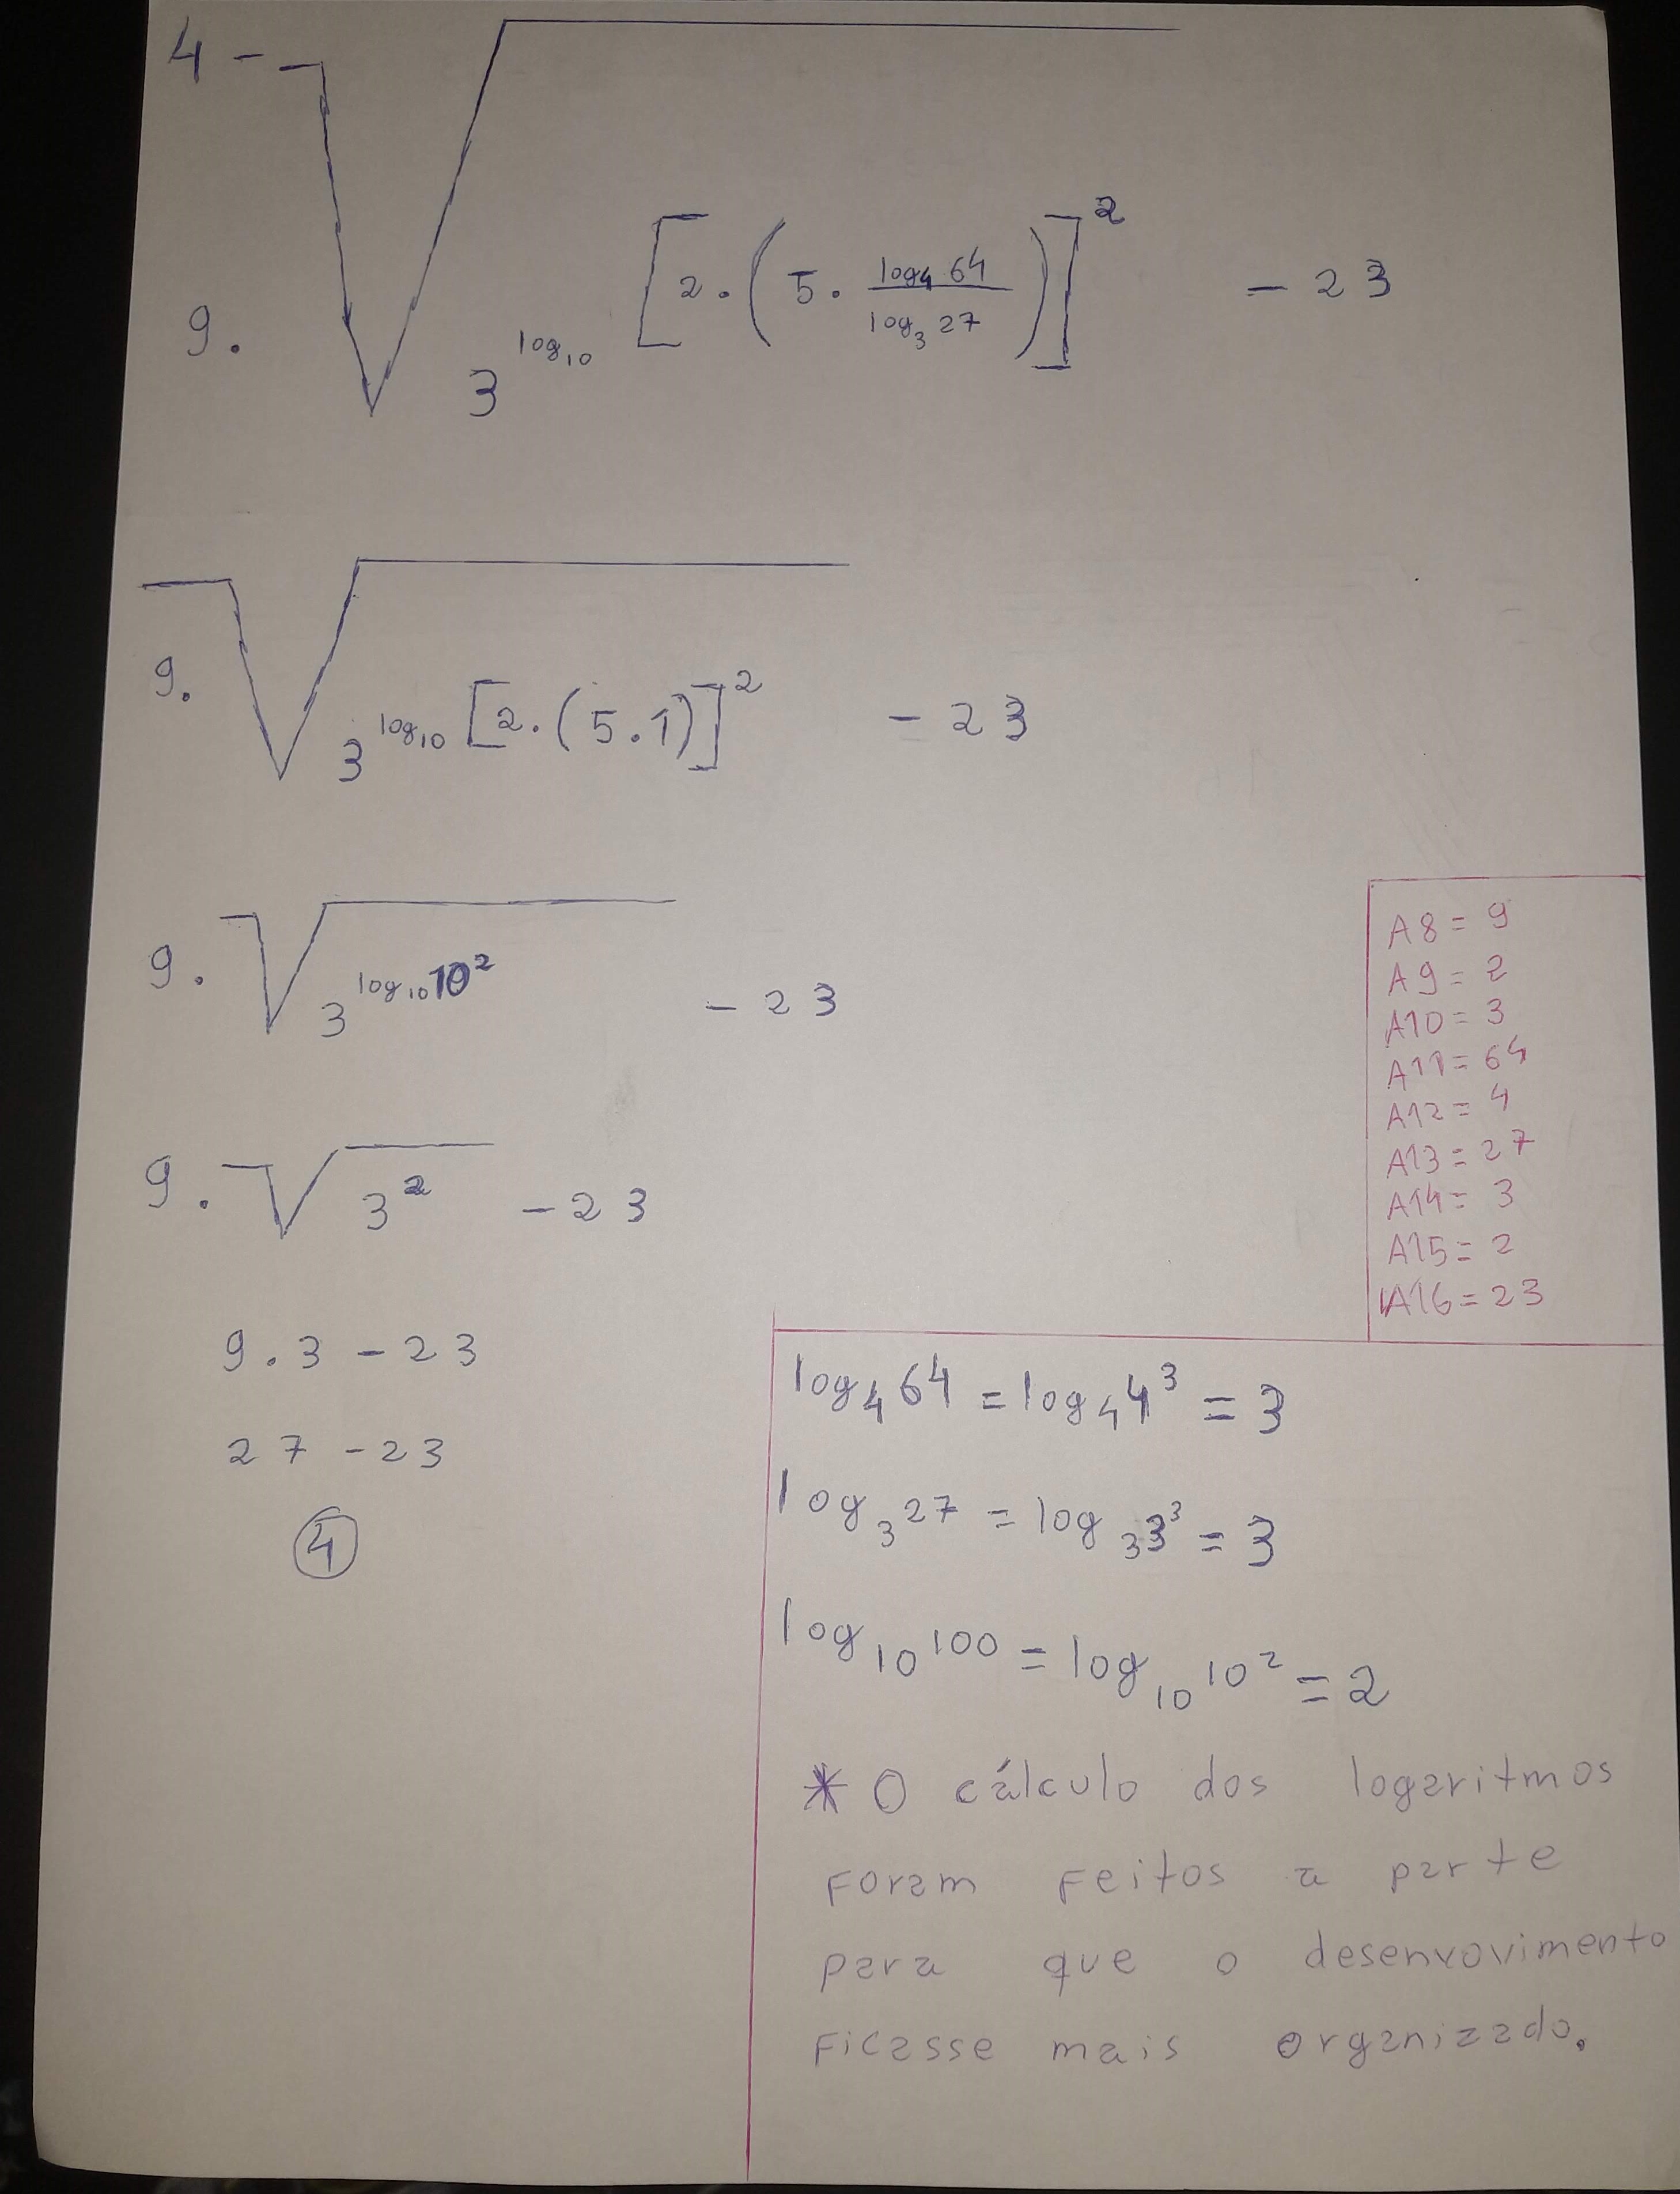 4 -
9. √ 3^log₁₀ [2.(5. log₄ 64 / log₃ 27)]² - 23
9. √ 3^log₁₀ [2.(5.1)]² - 23
9. √ 3^log₁₀10² - 23
9. √ 3² - 23
9.3 - 23
27 - 23
4
A8 = 9
A9 = 2
A10 = 3
A11 = 64
A12 = 4
A13 = 27
A14 = 3
A15 = 2
A16 = 23
log₄ 64 = log₄ 4³ = 3
log₃ 27 = log₃ 3³ = 3
log₁₀ 100 = log₁₀ 10² = 2
* O cálculo dos logaritmos
foram feitos a parte
para que o desenvovimento
ficasse mais organizado.